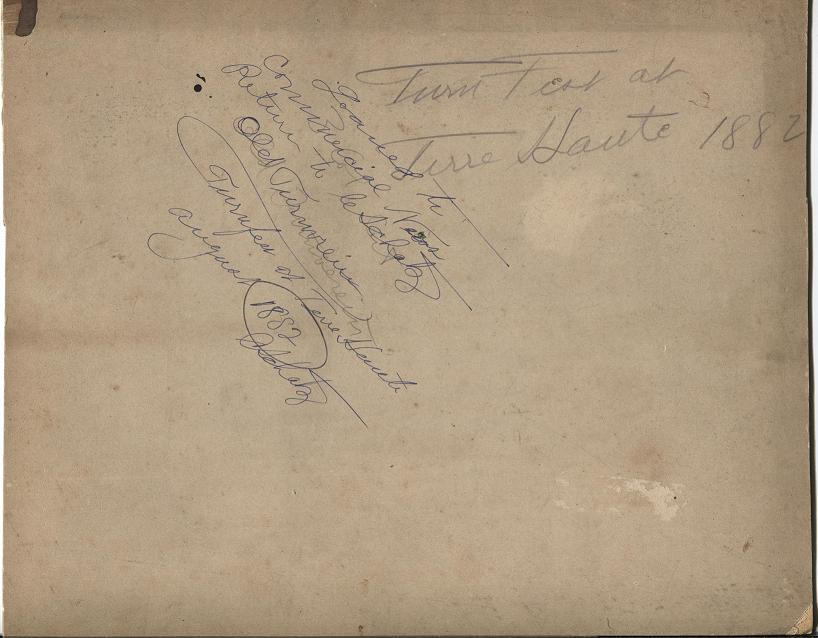 Turn Fest at
Terre Haute 1882
Loaned to
Commercial News
Return to C Schatz
Old Turnverein
Turnfest at Terre Haute
August 1882
Schatz